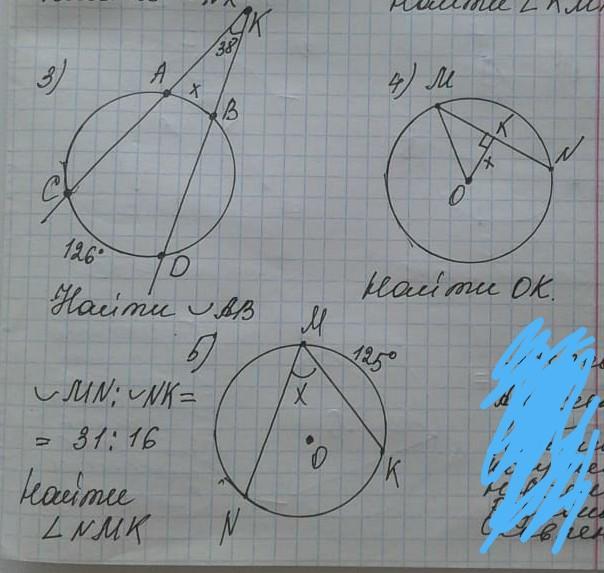 Найти ∠КМ
K
38°
3)
A
x
B
C
126°
D
Найти ◡AB
4)
M
K
N
x
O
Найти OK.
5)
◡MN : ◡NK =
= 31 : 16
Найти
∠NMK
M
125°
X
O
K
N